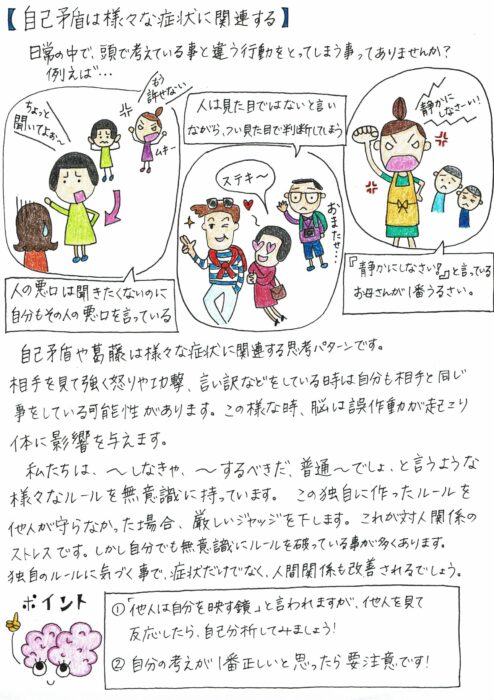 【自己矛盾は様々な症状に関連する】
日常の中で、頭で考えている事と違う行動をとってしまう事ってありませんか？
例えば…
ちょっと
聞いてよぉ〜
もう
許せない
ムキー
人の悪口は聞きたくないのに
自分もその人の悪口を言っている
人は見た目ではないと言い
ながら、つい見た目で判断してしまう
ステキ〜
おまたせ…
静かに
しなさーい!
『静かにしなさい!』と言っている
お母さんが1番うるさい。
自己矛盾や葛藤は様々な症状に関連する思考パターンです。
相手を見て強く怒りや攻撃、言い訳などをしている時は自分も相手と同じ
事をしている可能性があります。この様な時、脳は誤作動が起こり
体に影響を与えます。
私たちは、〜しなきゃ、〜するべきだ、普通〜でしょ、と言うような
様々なルールを無意識に持っています。この独自に作ったルールを
他人が守らなかった場合、厳しいジャッジを下します。これが対人関係の
ストレスです。しかし自分でも無意識にルールを破っている事が多くあります。
独自のルールに気づく事で、症状だけでなく、人間関係も改善されるでしょう。
ポイント
①「他人は自分を映す鏡」と言われますが、他人を見て
反応したら、自己分析してみましょう!
②自分の考えが1番正しいと思ったら要注意です!